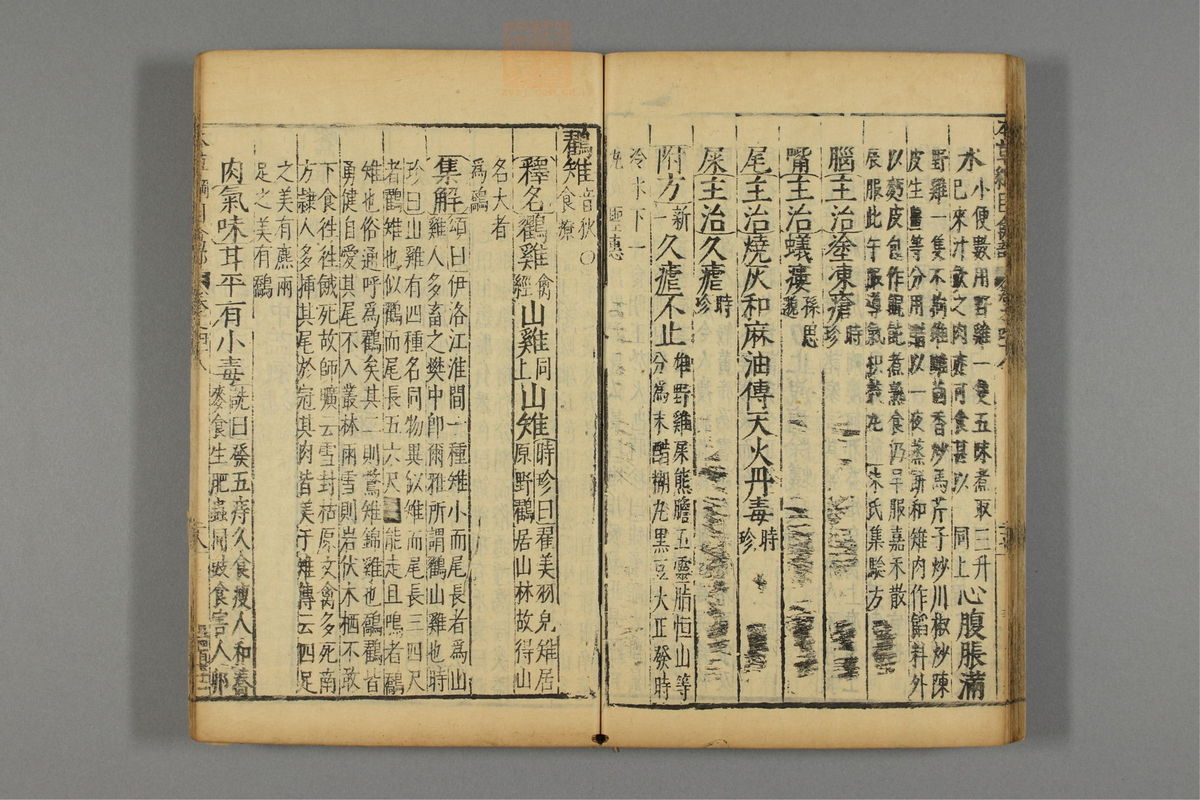 水 小便數用野雞一隻五味煮取三升
已來汁飲之肉亦可食甚以 同上 心腹脹滿
野雞一隻不拘雄雌茴香炒馬芹子炒川椒炒陳
皮生薑等分用醋以一夜蒸餅和雉肉作餡料外
以麪皮包作餛飩煮熟食仍早服嘉禾散
辰服此午服導氣枳殼丸 朱氏集驗方
腦主治塗凍瘡時珍
嘴主治蟻瘻孫思邈
尾主治燒灰和麻油傅天火丹毒時珍
屎主治久瘧時珍
附方一新 久瘧不止 雄野雞屎熊膽五靈脂恒山等
分為末醋糊丸黑豆大正發時
冷水下一
丸 聖惠
鸐雉音狄食療
釋名鸐雞禽經山雞同上山雉時珍曰翟美羽皃雉居
原野鸐居山林故得山
名大者
為鸐
集解頌曰伊洛江淮間一種雉小而尾長者為山
雞人多畜之樊中即爾雅所謂鸐山雞也時
珍曰山雞有四種名同物異似雉而尾長三四尺
者鸐雉也似鸐而尾長五六尺能走且鳴者鷮
雉也俗通呼為鸐矣其二則鷩雉錦雞也鷮鸐皆
勇健自愛其尾不入叢林雨雪則岩伏木栖不敢
下食往往餓死故師曠云雪封枯原文禽多死南
方隷人多揷其尾於冠其肉皆美于雉傳云四足
之美有麃兩
足之美有鷮
肉氣味甘平有小毒詵曰發五痔久食瘦人和蕎
麥食生肥蟲同豉食害人